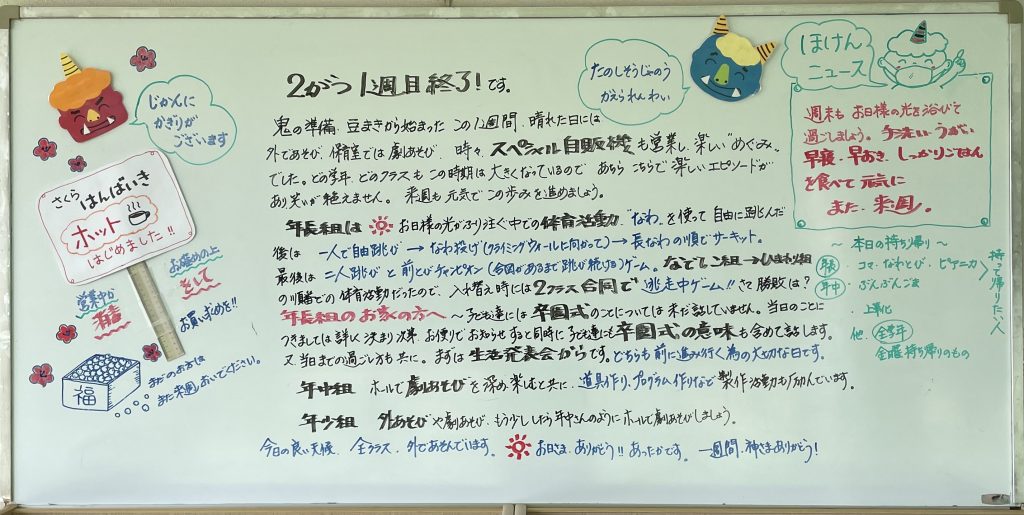 じかんに
かぎりが
ございます
さくら はんばいき
ホット
はじめました!!
お確めの上
営業中か
そして
お買い求めを!!
福
まだのお方は
また来週おいでください。
2がつ 1週目終了!です。
たのしそうじゃのう
かえられんわい
鬼の準備、豆まきから始まった この1週間、晴れた日には
外であそび、保育室では劇あそび、時々、スペシャル自販機も営業し、楽しい めぐみ、
でした。どの学年、どのクラスも この時期は 大きくなっているので あちら こちらで楽しいエピソードが
あり笑いが絶えません。来週も元気でこの歩みを進めましょう。
年長組は お日様の光がふり注ぐ中での体育活動、"なわ"を使って自由に跳んだ
後は 一人で自由跳び → なわ投げ(クライミングウォールに向かって) → 長なわの順でサーキット。
最後は 二人跳び と 前とびチャンピオン(合図があるまで跳び続ける)ゲーム。なでしこ組→ひまわり組
の順番での体育活動だったので、入れ替え時には2クラス合同で 逃走中ゲーム!! さて勝敗は?
年長組のお家の方へ ～子ども達には卒園式のことについては未だ話していません。当日のことに
つきましては詳しく決まり次第 お便りでお知らせすると同時に子ども達にも卒園式の意味も含めて話します。
又 当日までの過ごし方も共に。まずは生活発表会からです。どちらも前に進み行く為の大切な日です。
年中組 ホールで劇あそびを深め楽しむと共に、道具作り、プログラム作りなど製作活動も励んでいます。
年少組 外あそびや劇あそび、もう少ししたら年中さんのようにホールで劇あそびしましょう。
今日の良い天候、全クラス、外であそんでいます。 お日さま、ありがとう!! あったかです。一週間、神さまありがとう!
ほけん
ニュース
週末も お日様の光を浴びて
過ごしましょう。手洗い・うがい
早寝・早おき、しっかりごはん
を食べて元気に
また、来週。
～ 本日の持ち帰り ～
年長 ・コマ・なわとび・ピアニカ
年中 ・ぶんぶんごま
持って帰りたい人
・上靴
他、全学年
金曜持ち帰りのもの